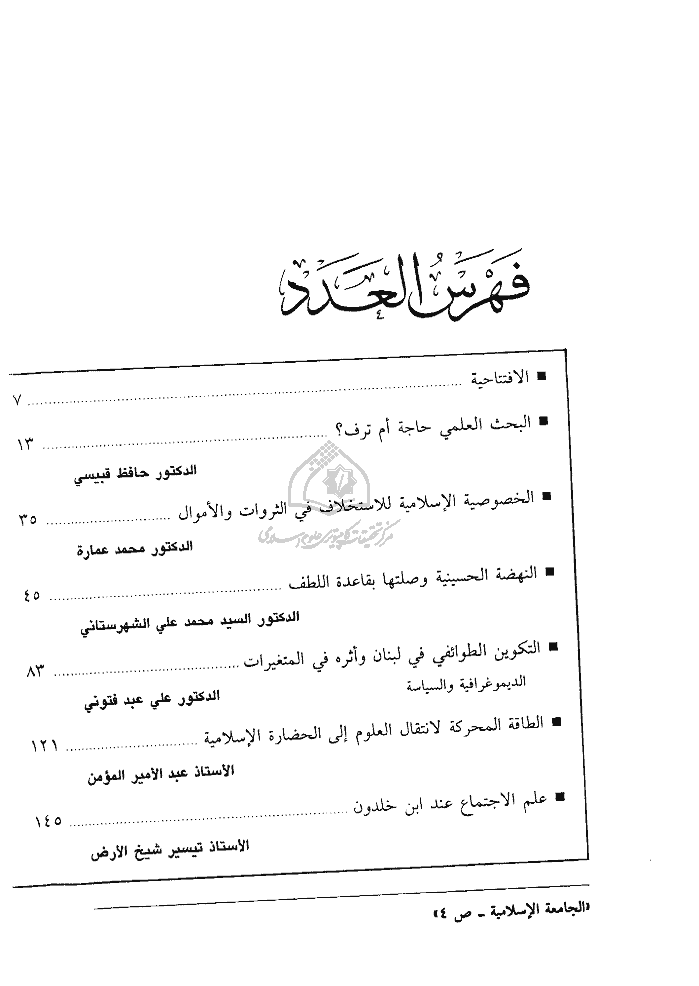 فَهْرَسُ العَدَد
■ الافتتاحية ........ ٧
■ البحث العلمي حاجة أم ترف؟ ........ ١٣
الدكتور حافظ قبيسي
■ الخصوصية الإسلامية للاستخلاف في الثروات والأموال ........ ٣٥
الدكتور محمد عمارة
■ النهضة الحسينية وصلتها بقاعدة اللطف ........ ٤٥
الدكتور السيد محمد علي الشهرستاني
■ التكوين الطوائفي في لبنان وأثره في المتغيرات ........ ٨٣
الديموغرافية والسياسة
الدكتور علي عبد فتوني
■ الطاقة المحركة لانتقال العلوم إلى الحضارة الإسلامية ........ ١٢١
الأستاذ عبد الأمير المؤمن
■ علم الاجتماع عند ابن خلدون ........ ١٤٥
الأستاذ تيسير شيخ الأرض
«الجامعة الإسلامية ـ ص ٤»
مركز تحقيقات كامپيوتری علوم اسلامی